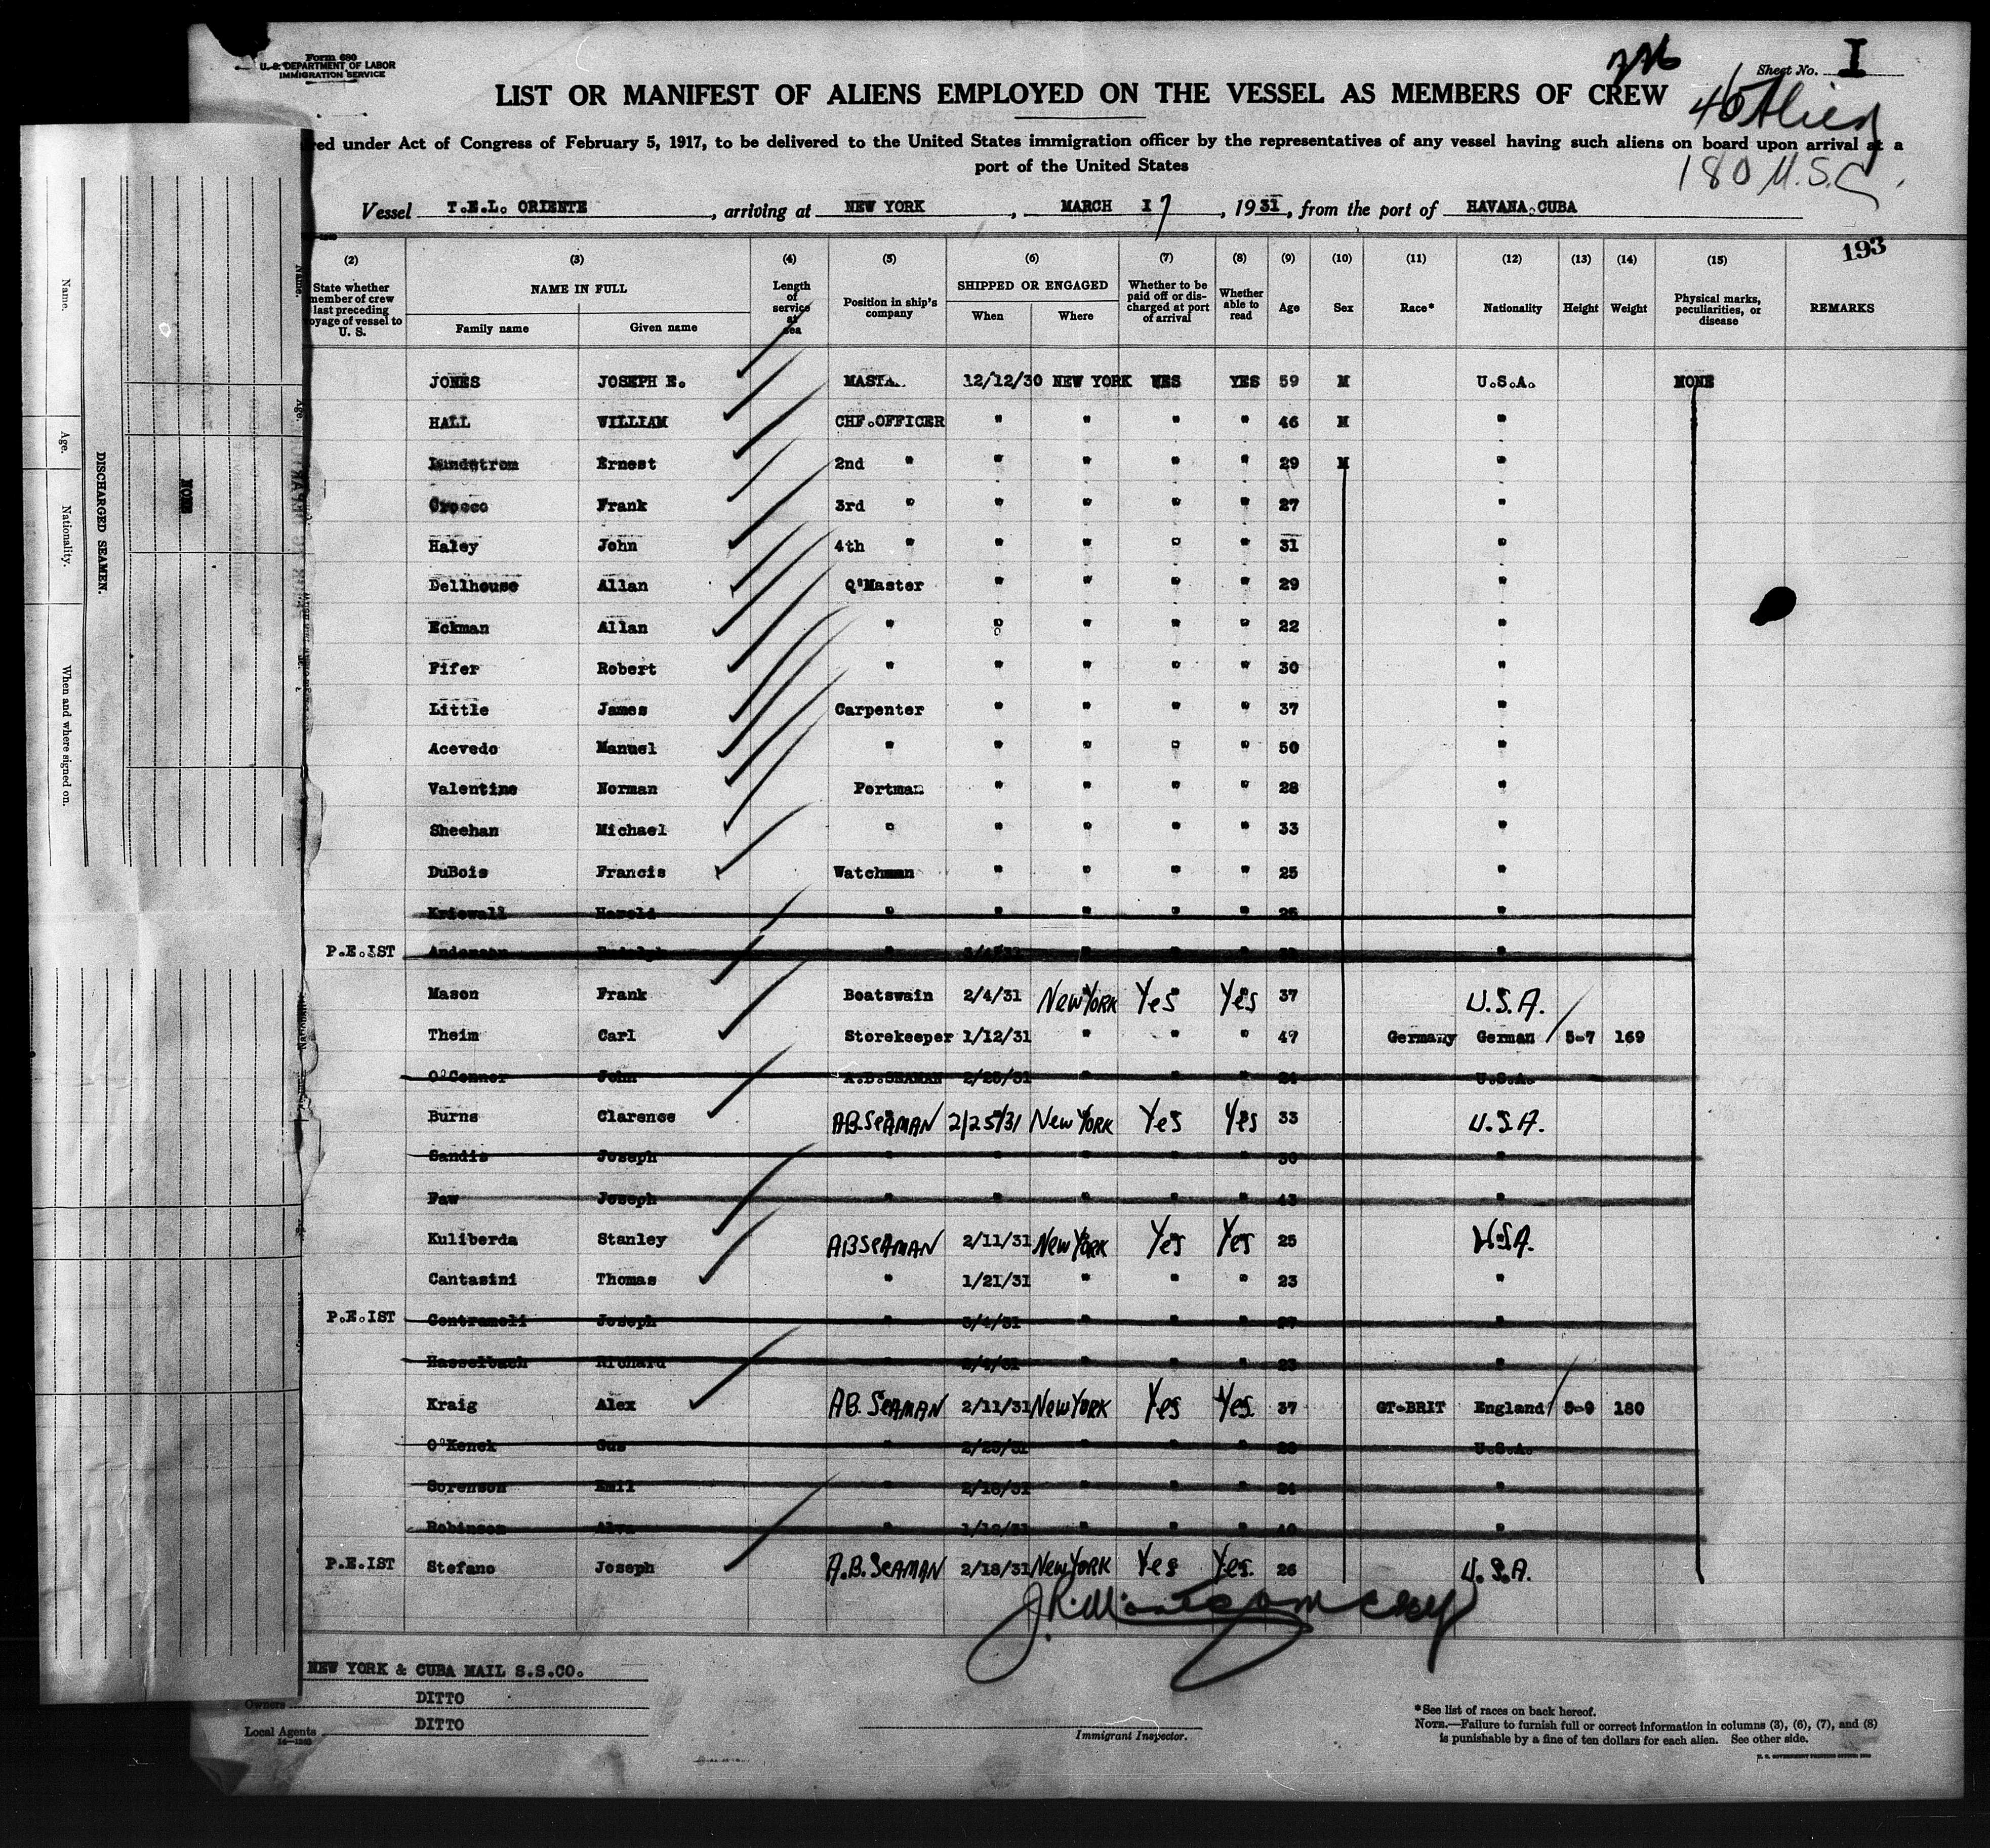 Form 680
U. S. DEPARTMENT OF LABOR
IMMIGRATION SERVICE
Sheet No. I
LIST OR MANIFEST OF ALIENS EMPLOYED ON THE VESSEL AS MEMBERS OF CREW
45 Alien
red under Act of Congress of February 5, 1917, to be delivered to the United States immigration officer by the representatives of any vessel having such aliens on board upon arrival at a
port of the United States
180 U.S.C.
Vessel T.E.L. ORIENTE, arriving at NEW YORK, MARCH 17, 1931, from the port of HAVANA.CUBA
193
(2) (3) (4) (5) (6) (7) (8) (9) (10) (11) (12) (13) (14) (15)
State whether member of crew last preceding oyage of vessel to U. S.
NAME IN FULL
Family name Given name
Length of service at sea
Position in ship's company
SHIPPED OR ENGAGED
When Where
Whether to be paid off or discharged at port of arrival
Whether able to read
Age Sex Race* Nationality Height Weight
Physical marks, peculiarities, or disease
REMARKS
JONES JOSEPH E. MASTA. 12/12/30 NEW YORK YES YES 59 M U.S.A. NONE
HALL WILLIAM CHF.OFFICER " " " " 46 M "
Lundstrom Ernest 2nd " " " " " 29 M "
Crocco Frank 3rd " " " " " 27 "
Haley John 4th " " " " " 31 "
Dellhouse Allan Q'Master " " " " 29 "
Eckman Allan " " " " " 22 "
Fifer Robert " " " " " 30 "
Little James Carpenter " " " " 37 "
Acevedo Manuel " " " " " 50 "
Valentine Norman Portman " " " " 28 "
Sheehan Michael " " " " " 33 "
DuBois Francis Watchman " " " " 25 "
Kriewall Harold " " " " " 25 "
P.E.IST Anderson Rudolph " " " " "
Mason Frank Boatswain 2/4/31 New York Yes Yes 37 U.S.A.
Theim Carl Storekeeper 1/12/31 " " " 47 Germany German 5-7 169
O'Connor John A.B.SEAMAN 2/25/31 " " " 24 U.S.A.
Burns Clarence AB.SEAMAN 2/25/31 New York Yes Yes 33 U.S.A.
Sandis Joseph " " " " " 30 "
Faw Joseph " " " " " 43 "
Kuliberda Stanley AB SEAMAN 2/11/31 New York Yes Yes 25 U.S.A.
Cantasini Thomas " 1/21/31 " " " 23 "
P.E.IST Contrameli Joseph " 3/4/31 " " " 27 "
Hasselbach Richard " 2/4/31 " " " 23 "
Kraig Alex AB. SEAMAN 2/11/31 New York Yes Yes. 37 GT-BRIT England 5-9 180
O'Kenek Gus " 2/25/31 " " " U.S.A.
Sorenson Emil " 2/18/31 " " " 24 "
Robinson Alva " 1/12/31 " " " 40 "
P.E.IST Stefano Joseph A.B. SEAMAN 2/18/31 New York Yes Yes. 26 U.S.A.
J.R. Montgomery
NEW YORK & CUBA MAIL S.S.CO.
Owners DITTO
Local Agents DITTO
Immigrant Inspector.
*See list of races on back hereof.
NOTE.—Failure to furnish full or correct information in columns (3), (6), (7), and (8)
is punishable by a fine of ten dollars for each alien. See other side.
DISCHARGED SEAMEN.
Name.
Age.
Nationality.
When and where signed on.
NONE